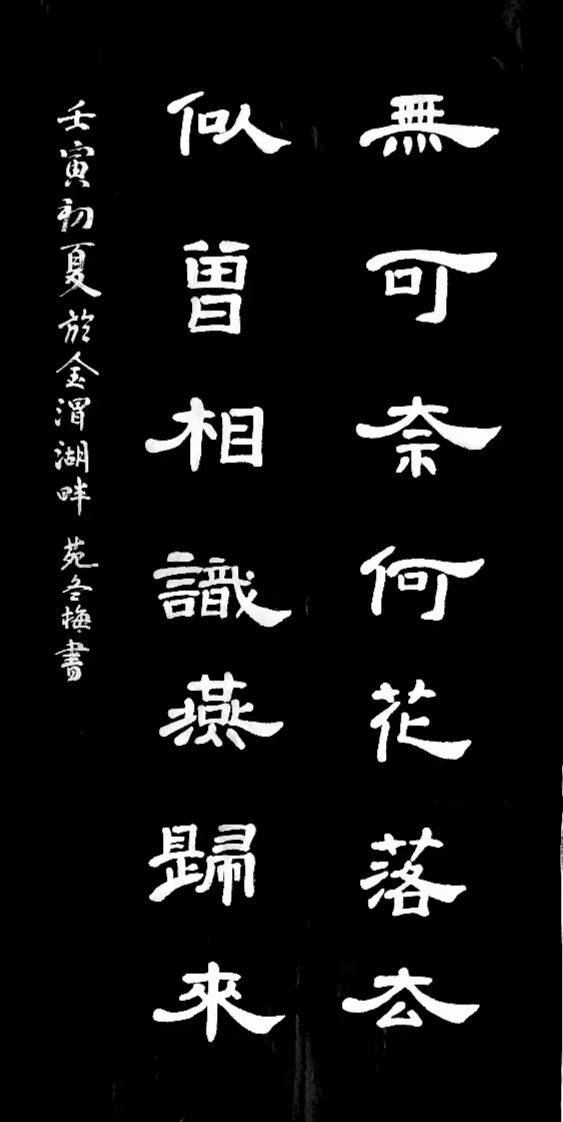 無可奈何花落去
似曾相識燕歸來
壬寅初夏於金渭湖畔 苑冬梅書